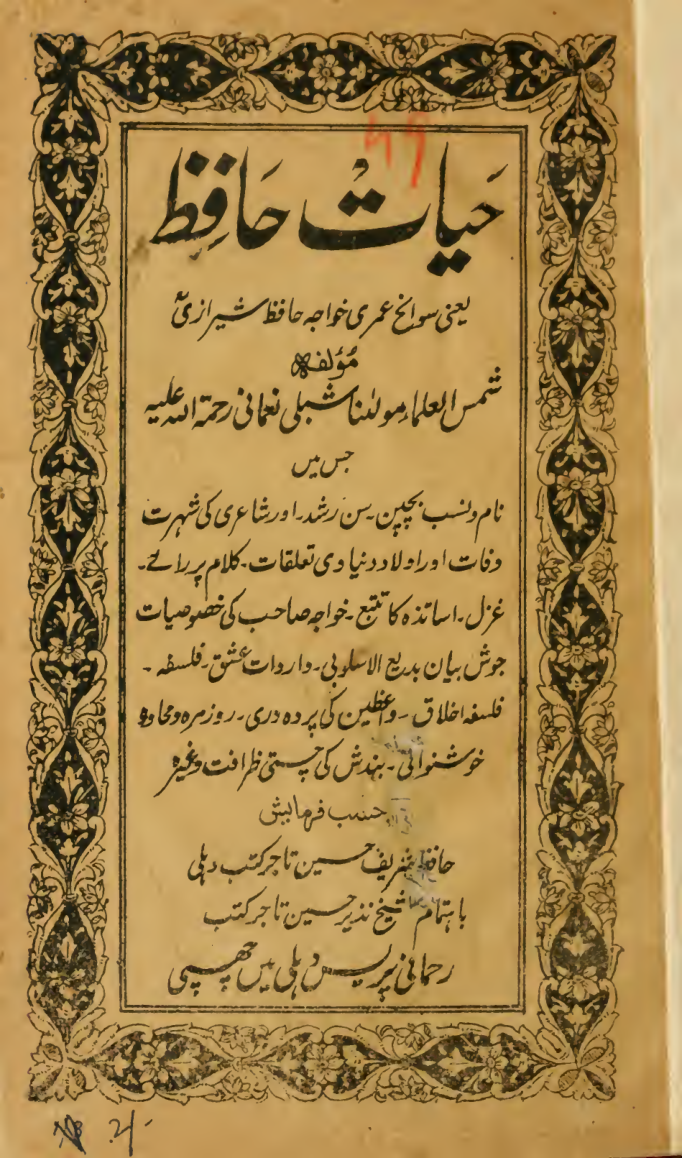 حیات حافظ
یعنی سوانح عمری خواجہ حافظ شیرازیؒ
مؤلفہ
شمس العلماء مولٰنا شبلی نعمانی رحمۃ اللہ علیہ
جس میں
نام و نسب بچپن۔ سن رشد۔ اور شاعری کی شہرت
وفات اور اولاد دنیاوی تعلقات۔ کلام پر رائے۔
غزل۔ اساتذہ کا تتبع۔ خواجہ صاحب کی خصوصیات
جوش بیان بدیع الاسلوبی۔ واردات عشق۔ فلسفہ۔
فلسفہ اخلاق۔ واعظین کی پردہ دری۔ روزمرہ و محاورہ
خوشنوائی۔ بندش کی چستی ظرافت وغیرہ
حسب فرمایش
حافظ شریف حسین تاجر کتب دہلی
باہتمام شیخ نذیر حسین تاجر کتب
رحمانی پریس دہلی میں چھپی